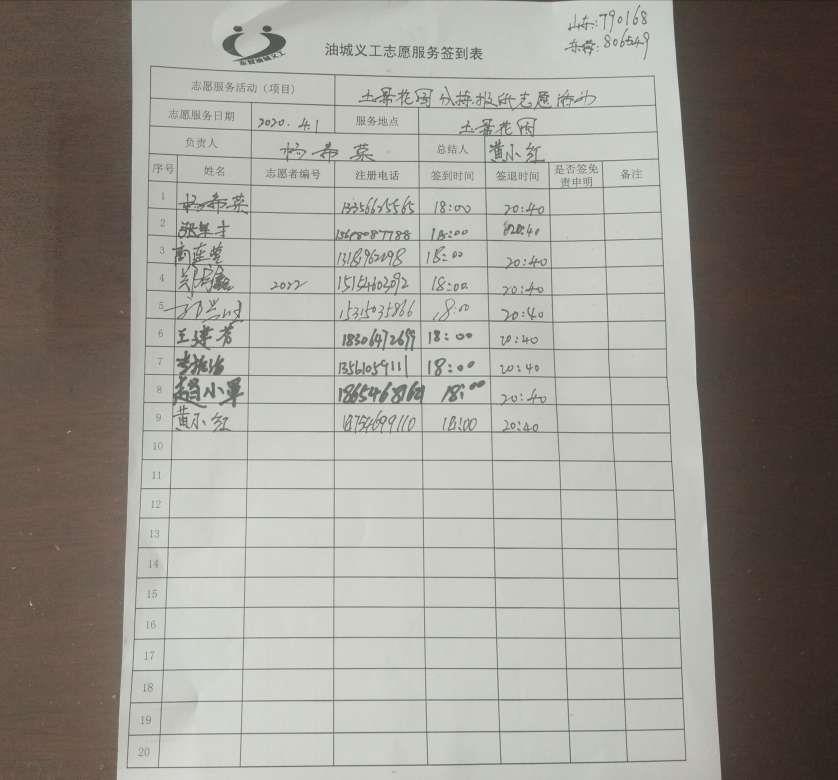 山东:790168
东营:806549
东营油城义工
油城义工志愿服务签到表
志愿服务活动(项目) 花园分拣投放志愿活动
志愿服务日期 2020.4.1 服务地点 花园
负责人 杨希菜 总结人 黄小红
序号 姓名 志愿者编号 注册电话 签到时间 签退时间 是否签免责申明 备注
1 杨希菜 13356625565 18:00 20:40
2 18:00 20:40
3 18:00 20:40
4 2022 15154602092 18:00 20:40
5 15315035866 18:00 20:40
6 王建芳 18306472699 18:00 20:40
7 13561059111 18:00 20:40
8 赵小军 18:00 20:40
9 黄小红 18754699110 18:00 20:40
10
11
12
13
14
15
16
17
18
19
20